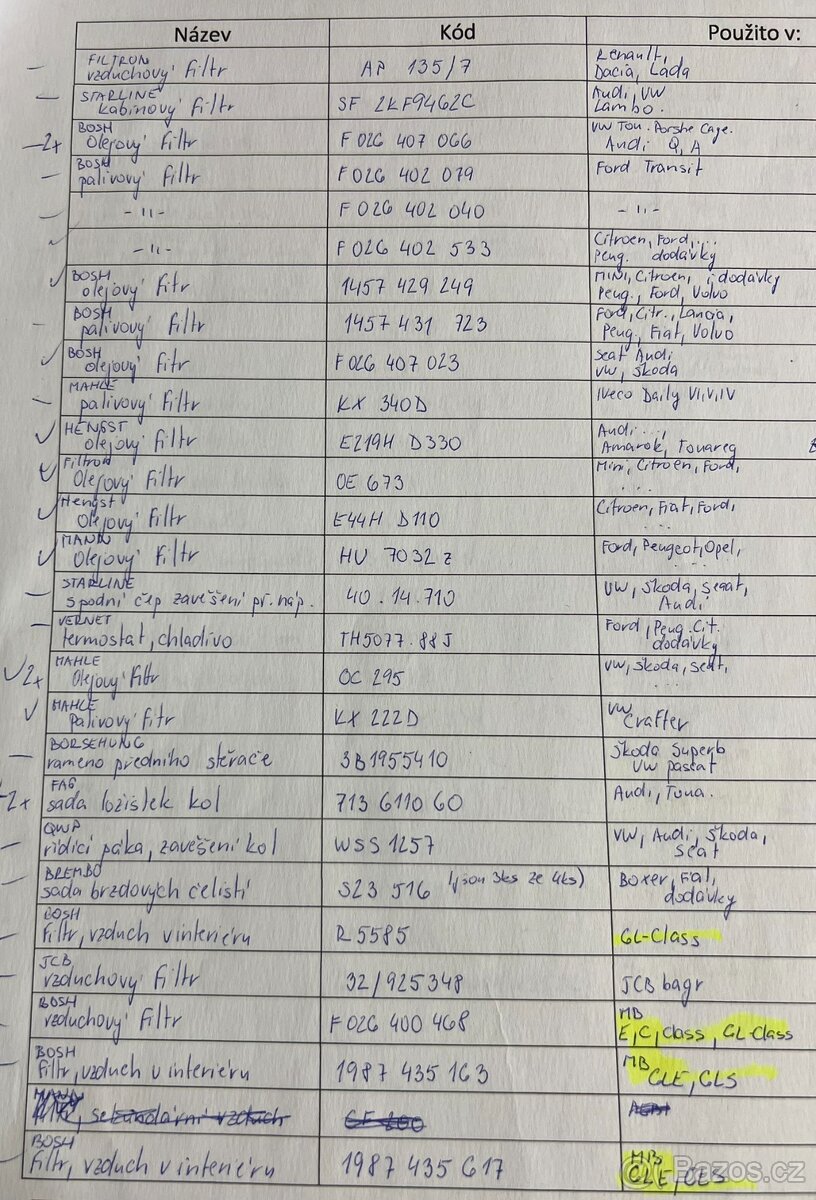 Název Kód Použito v:
FILTRON Renault,
– vzduchový filtr AP 135/7 Dacia, Lada
STARLINE Audi, VW
– kabinový filtr SF 2KF9462C Lambo.
BOSH VW Tou. Porshe Caye.
–2x Olejový filtr F 026 407 066 Audi Q, A
BOSH
– palivový filtr F 026 402 079 Ford Transit
– -11- F 026 402 040 -11-
Citroen, Ford,...
✓ -11- F 026 402 533 Peug. dodávky
BOSH MINI, Citroen, i dodávky
✓ olejový filtr 1457 429 249 Peug., Ford, Volvo
BOSH Ford, Citr., Lancia,
– palivový filtr 1457 431 723 Peug, Fiat, Volvo
BOSH Seat Audi
✓ olejový fitr F 026 407 023 VW, Škoda
MAHLE
– palivový filtr KX 340D Iveco Daily VI, V, IV
HENGST Audi ...,
✓ olejový filtr E219H D330 Amarok, Touareg
Filtron Mini, Citroen, Ford,
✓ Olejový filtr OE 673 ...
Hengst Citroen, Fiat, Ford,
✓ Olejový filtr E44H D110 ...
MANN Ford, Peugeot, Opel,
✓ Olejový filtr HU 7032 z ...
STARLINE VW, Škoda, Seaat,
– spodní čep zavěšení př. náp. 40.14.710 Audi
VERNET Ford, Peug. Cit.
– termostat, chladivo TH5077.88J dodávky
MAHLE VW, Škoda, Seat,
✓2x Olejový filtr OC 295 ...
MAHLE VW
✓ Palivový fitr KX 222D Crafter
BORSEHUNG Škoda Superb
– rameno předního stěrače 3B1955410 VW paseat
FAG
–2x sada ložistek kol 713 6110 60 Audi, Toua.
QWP VW, Audi, Škoda,
– řidící páka, zavěšení kol WSS 1257 Seat
BREMBO Boxer, Fiat,
– sada brzdových čelistí S23 516 (jsou 3ks ze 4ks) dodávky
BOSH
– Filtr, vzduch v interiéru R 5585 GL-Class
JCB
– vzduchový filtr 32/925348 JCB bagr
BOSH MB
– vzduchový filtr F 026 400 468 E, C, Class, GL-Class
BOSH MB
– Filtr, vzduch v interiéru 1987 435 163 GLE, GLS
sekundární vzduch
BOSH MB
– filtr, vzduch v interiéru 1987 435 617 GLE,
Bazos.cz